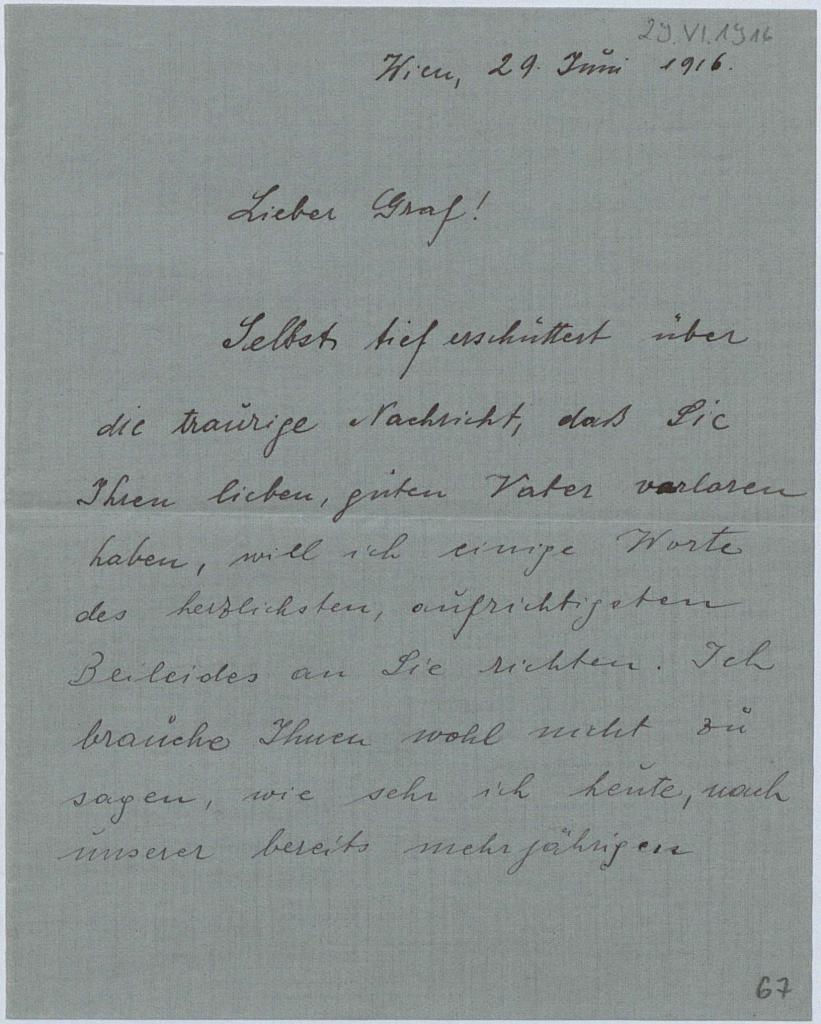 29.VI.1916
Wien, 29. Juni 1916.
Lieber Graf!
Selbst tief erschüttert über
die traurige Nachricht, daß Sie
Ihren lieben, guten Vater verloren
haben, will ich einige Worte
des herzlichsten, aufrichtigsten
Beileides an Sie richten. Ich
brauche Ihnen wohl nicht zu
sagen, wie sehr ich heute, nach
unserer bereits mehrjährigen
67